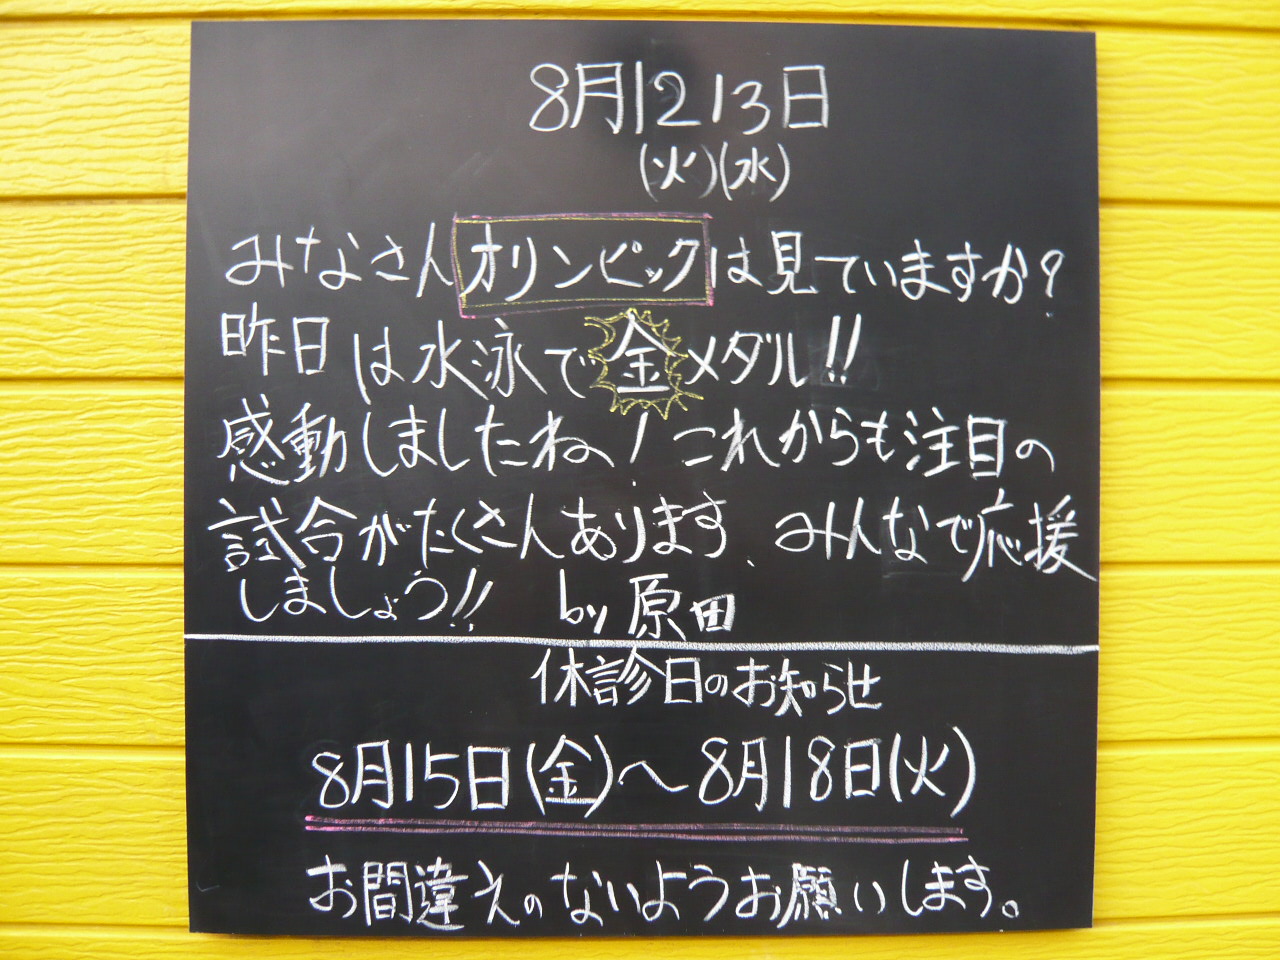 8月12 13日
(火)(水)
みなさんオリンピックは見ていますか?
昨日は水泳で金メダル!!
感動しましたね！これからも注目の
試合がたくさんあります、みんなで応援
しましょう!! by 原田
休診日のお知らせ
8月15日(金)～8月18日(火)
お間違えのないようお願いします。